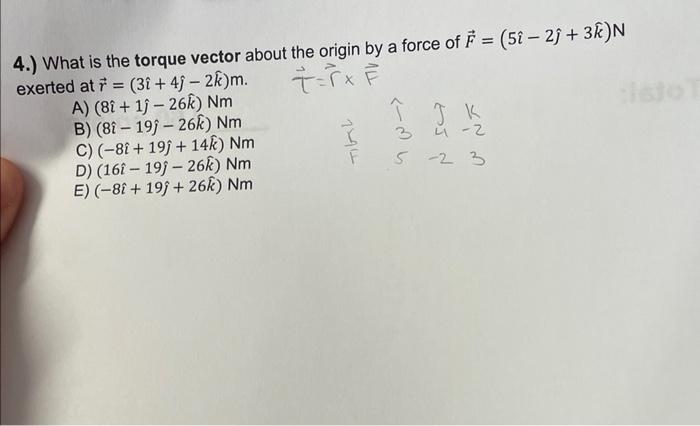 4.) What is the torque vector about the origin by a force of F⃗ = (5î − 2ĵ + 3k̂)N
exerted at r⃗ = (3î + 4ĵ − 2k̂)m.
τ⃗ = r⃗ × F⃗
A) (8î + 1ĵ − 26k̂) Nm
B) (8î − 19ĵ − 26k̂) Nm
C) (−8î + 19ĵ + 14k̂) Nm
D) (16î − 19ĵ − 26k̂) Nm
E) (−8î + 19ĵ + 26k̂) Nm
î ĵ k
r⃗ 3 4 -2
F 5 -2 3